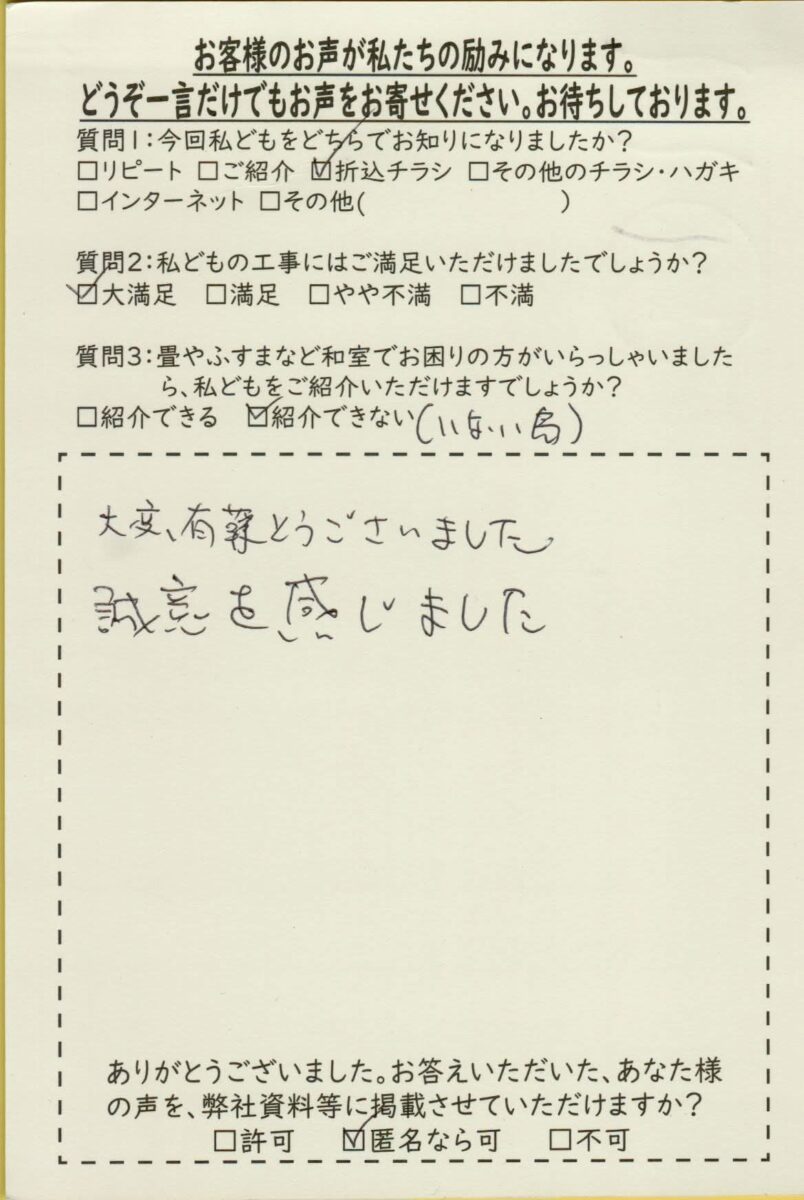 お客様のお声が私たちの励みになります。
どうぞ一言だけでもお声をお寄せください。お待ちしております。
質問1:今回私どもをどちらでお知りになりましたか?
□リピート □ご紹介 ☑折込チラシ □その他のチラシ・ハガキ
□インターネット □その他( )
質問2:私どもの工事にはご満足いただけましたでしょうか?
☑大満足 □満足 □やや不満 □不満
質問3:畳やふすまなど和室でお困りの方がいらっしゃいました
ら、私どもをご紹介いただけますでしょうか?
□紹介できる ☑紹介できない(いない為)
大変、有難とうございました
誠意を感じました
ありがとうございました。お答えいただいた、あなた様
の声を、弊社資料等に掲載させていただけますか?
□許可 ☑匿名なら可 □不可